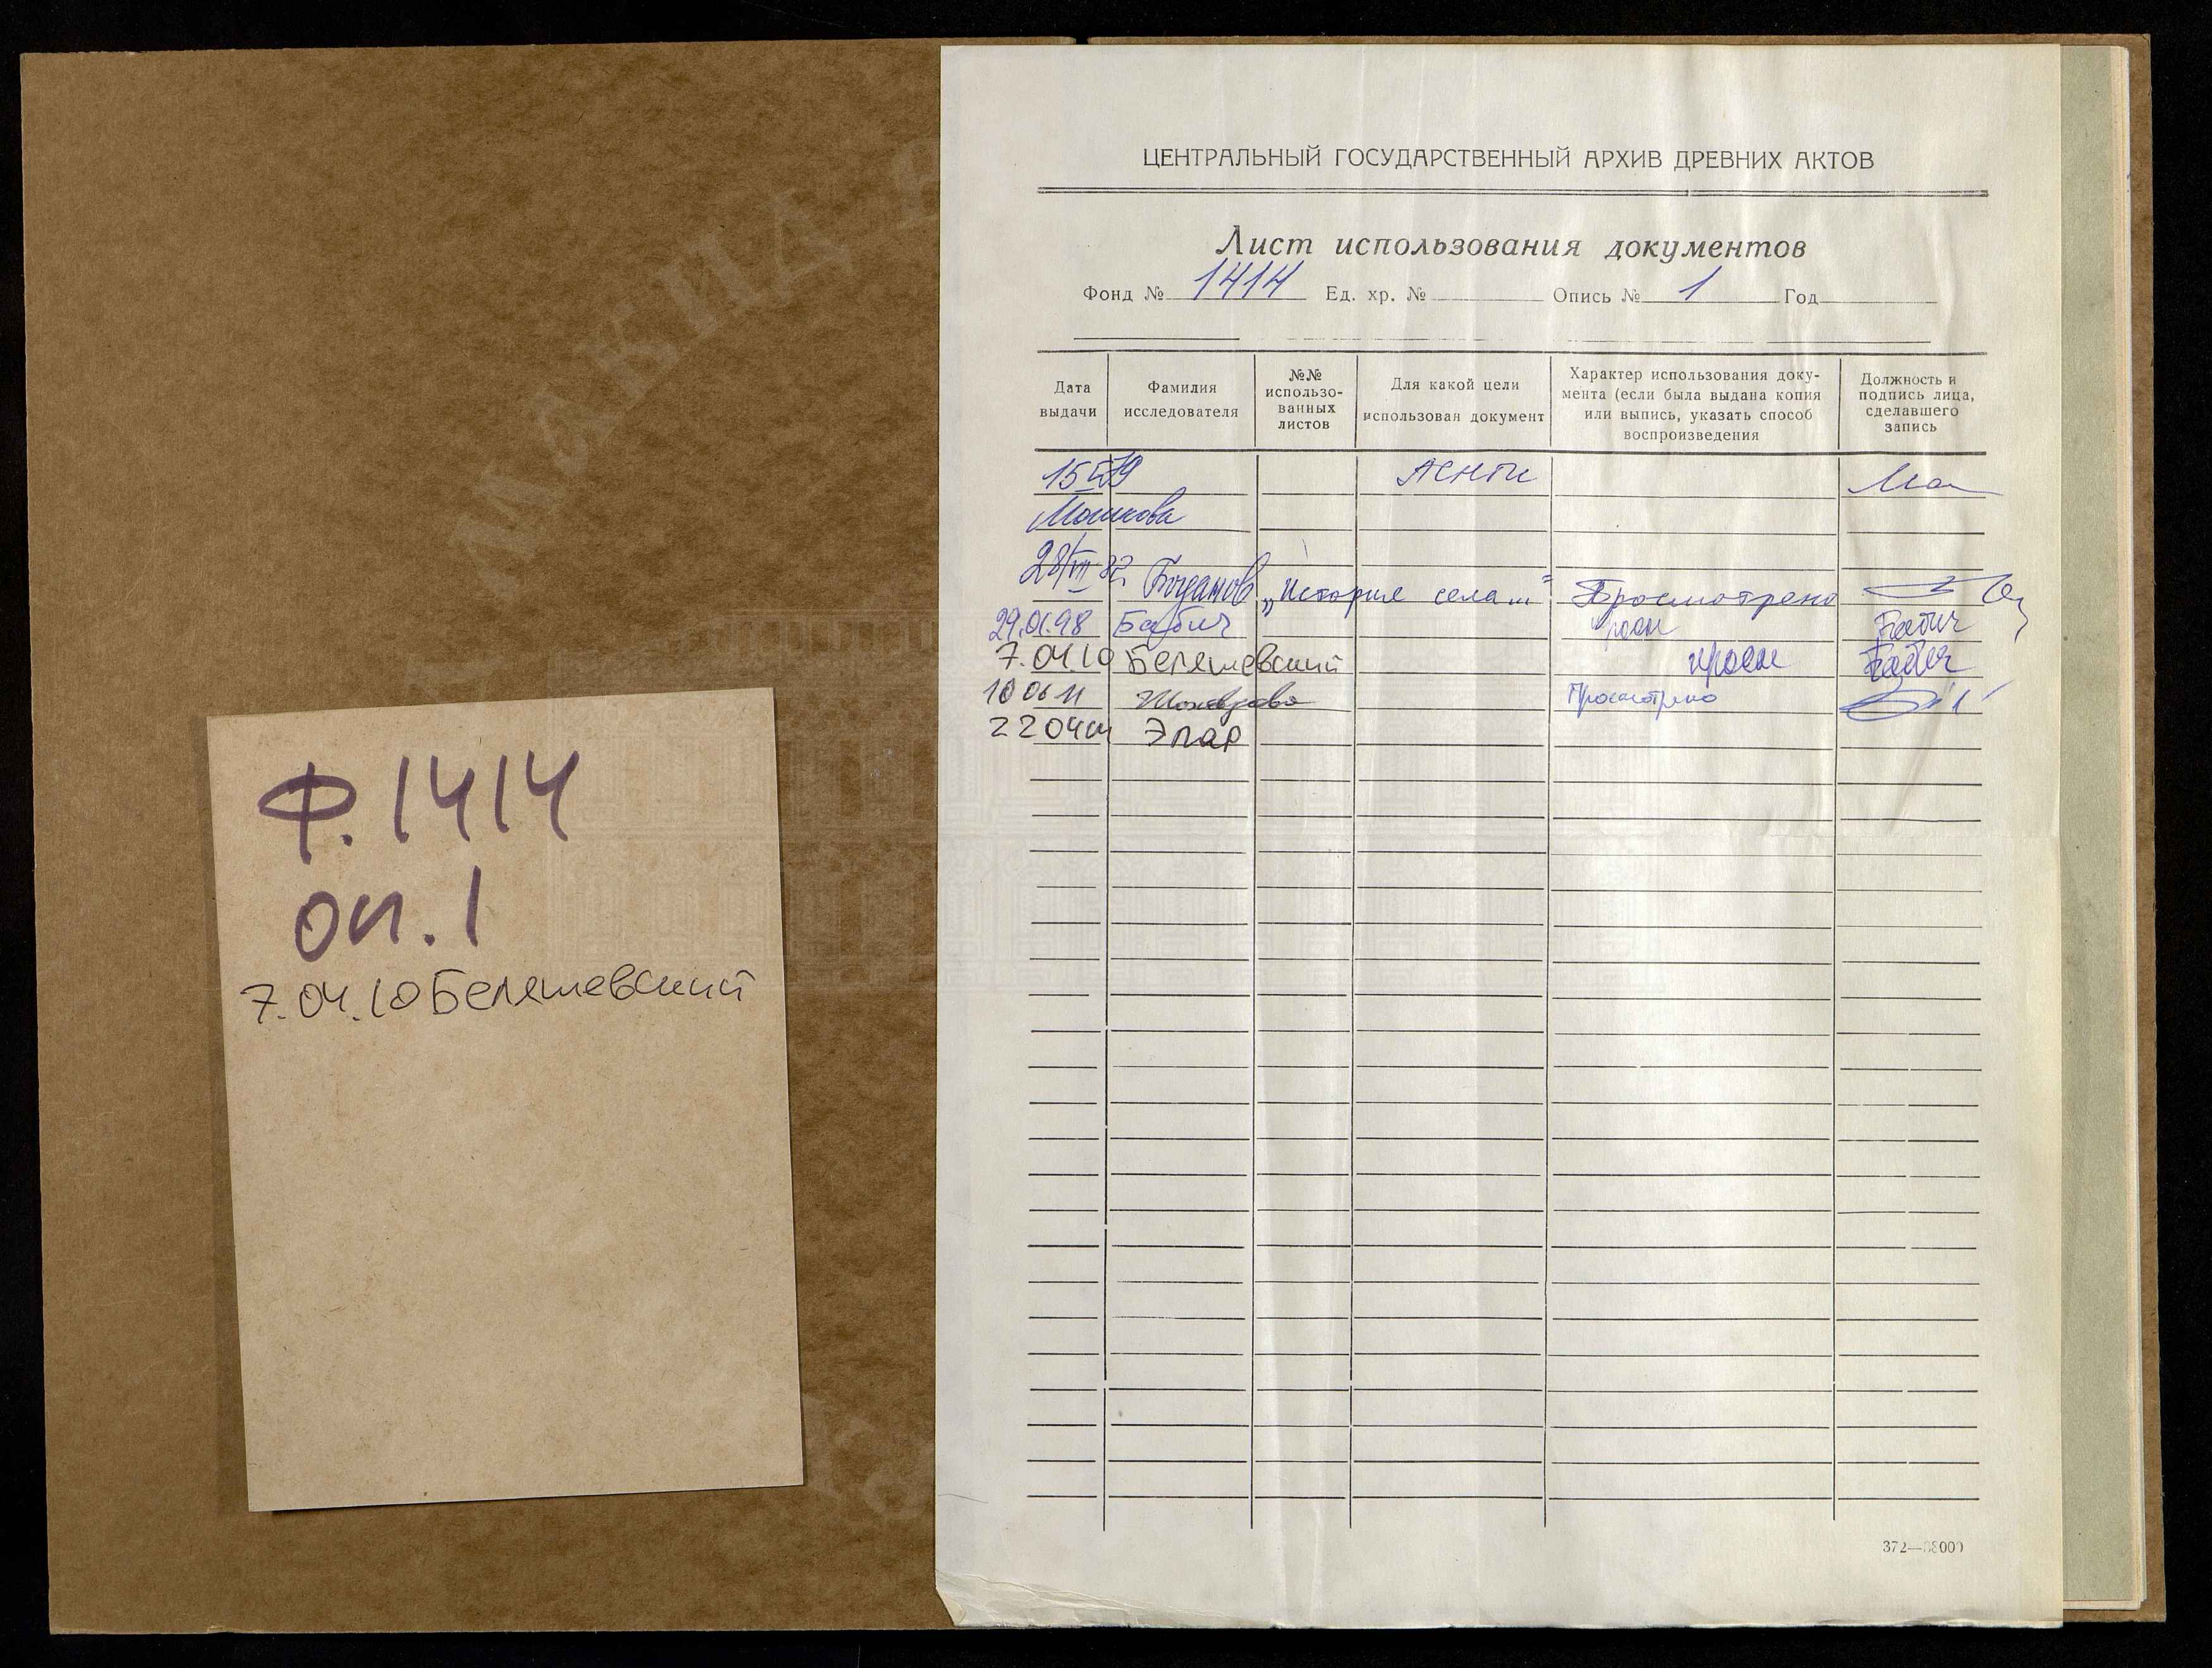 Ф. 1414
оп. 1
7.04.10 Беляшевский
ЦЕНТРАЛЬНЫЙ ГОСУДАРСТВЕННЫЙ АРХИВ ДРЕВНИХ АКТОВ
Лист использования документов
Фонд № 1414 Ед. хр. № Опись № 1 Год
Дата выдачи
Фамилия исследователя
№№ использо-ванных листов
Для какой цели использован документ
Характер использования доку-
мента (если была выдана копия
или выпись, указать способ
воспроизведения
Должность и
подпись лица,
сделавшего
запись
Мошкова
Богданов „История села..." Просмотрено
29.01.98 Бабич Бабич
7.04.10 Беляшевский просм Бабич
10 06 11 Просмотрено
2204 Эпар